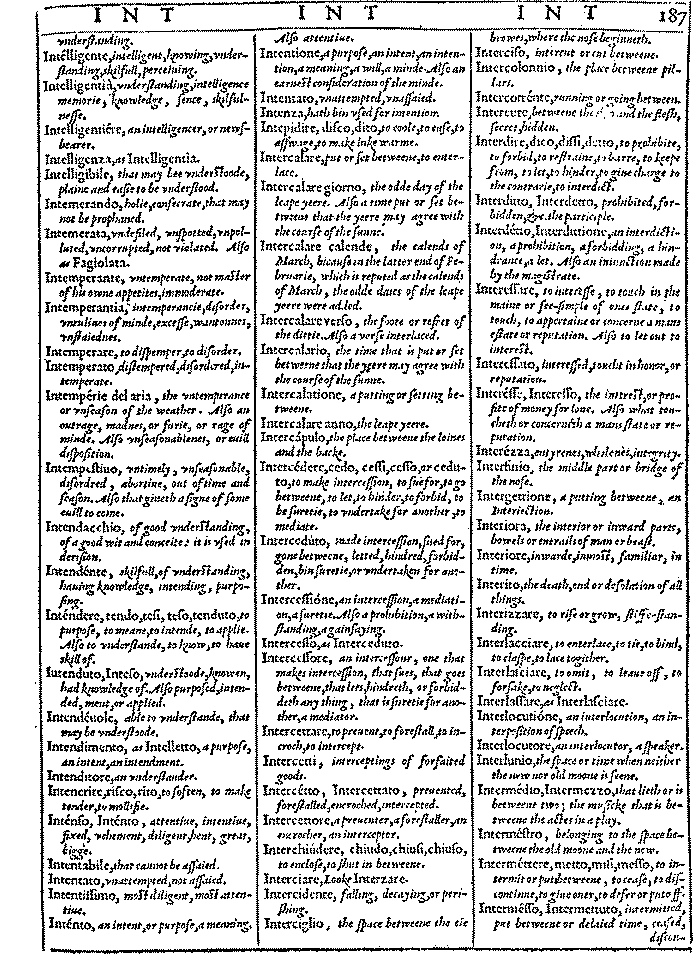 I N T I N T I N T 187
vnderstanding.
Intelligente, intelligent, knowing, vnder-
standing, skilfull, perceiuing.
Intelligentia, vnderstanding, intelligence
memorie, knowledge, sence, skilful-
nesse.
Intelligentiére, an intelligencer, or newes-
bearer.
Intelligenza, as Intelligentia.
Intelligibile, that may bee vnderstoode,
plaine and ease to be vnderstood.
Intemerando, holie, consecrate, that may
not be prophaned.
Intemerata, vndefiled, vnspotted, vnpol-
luted, vncorrupted, not violated. Also
as Fagiolata.
Intemperante, vntemperate, not master
of his owne appetites, immoderate.
Intemperantia, intemperancie, disorder,
vnrulines of minde, excesse, wantonnes,
vnstaiednes.
Intemperare, to distemper, to disorder.
Intemperato, distempered, disordered, in-
temperate.
Intempérie del aria, the vntemperance
or vnseason of the weather. Also an
outrage, madnes, or furie, or rage of
minde. Also vnseasonablenes, or euill
disposition.
Intempestiuo, vntimely, vnseasonable,
disordred, abortiue, out of time and
season. Also that giueth a signe of some
euill to come.
Intendacchio, of good vnderstanding,
of a good wit and conceite: it is vsed in
derision.
Intendénte, skilfull, of vnderstanding,
hauing knowledge, intending, purpo-
sing.
Inténdere, tendo, tesi, teso, tenduto, to
purpose, to meane, to intende, to applie.
Also to vnderstande, to know, to haue
skill of.
Intenduto, Inteso, vnderstoode, knowen,
had knowledge of. Also purposed, inten-
ded, ment, or applied.
Intendéuole, able to vnderstande, that
may be vnderstoode.
Intendimento, as Intelletto, a purpose,
an intent, an intendment.
Intenditore, an vnderstander.
Intenerire, risco, rito, to soften, to make
tender, to mollifie.
Inténso, Inténto, attentiue, intentiue,
fixed, vehement, diligent, bent, great,
bigge.
Intentabile, that cannot be assaied.
Intentato, vnattempted, not assaied.
Intentissimo, most diligent, most atten-
tiue.
Inténto, an intent, or purpose, a meaning.
Also attentiue.
Intentione, a purpose, an intent, an inten-
tion, a meaning, a will, a minde. Also an
earnest consideration of the minde.
Intentato, vnattempted, vnassaied.
Intenza, hath bin vsed for intention.
Intepidire, disco, dito, to coole, to ease, to
asswage, to make luke warme.
Intercalare, put or set betweene, to enter-
lace.
Intercalare giorno, the odde day of the
leape yeere. Also a time put or set be-
tweene that the yeere may agree with
the course of the sunne.
Intercalare calende, the calends of
March, bicause in the latter end of Fe-
bruarie, which is reputed as the calends
of March, the odde daies of the leape
yeere were added.
Intercalare verso, the foote or refret of
the dittie. Also a verse interlaced.
Intercalario, the time that is put or set
betweene that the yeere may agree with
the course of the sunne.
Intercalatione, a putting or setting be-
tweene.
Intercalare anno, the leape yeere.
Intercápulo, the place betweene the loines
and the backe.
Intercédere, cedo, cessi, cesso, or cedu-
to, to make intercession, to sue for, to go
betweene, to let, to hinder, to forbid, to
be suretie, to vndertake for another, to
mediate.
Interceduto, made intercession, sued for,
gone betweene, letted, hindred, forbid-
den, bin suretie, or vndertaken for ano-
ther.
Intercessióne, an intercession, a mediati-
on, a suretie. Also a prohibition, a with-
standing, a gainsaying.
Intercesso, as Interceduto.
Intercessore, an intercessour, one that
makes intercession, that sues, that goes
betweene, that lets, hindreth, or forbid-
deth any thing, that is suretie for ano-
ther, a mediator.
Intercettare, to preuent, to forestall, to in-
croch, to intercept.
Intercetti, interceptings of forfaited
goods.
Intercétto, Intercettato, preuented,
forestalled, encroched, intercepted.
Intercettore, a preuenter, a forestaller, an
encrocher, an interceptor.
Interchiúdere, chiudo, chiusi, chiuso,
to enclose, to shut in betweene.
Interciare, Looke Interzare.
Intercidente, falling, decaying, or peri-
shing.
Interciglio, the space betweene the eie
browes, where the nose beginneth.
Interciso, intercut or cut betweene.
Intercolonnio, the place betweene pil-
lars.
Intercorrénte, running or going between.
betweene the and the flesh,
secret, hidden.
Interdire, dico, dissi, detto, to prohibite,
to forbid, to restraine, to barre, to keepe
from, to let, to hinder, to giue charge to
the contrarie, to interdict.
Interduto, Interdetto, prohibited, for-
bidden, &c. the participle.
Interdétto, Interdittione, an interdicti-
on, a prohibition, a forbidding, a hin-
drance, a let. Also an iniunction made
by the magistrate.
Interessare, to interesse, to touch in the
maine or fee-simple of ones state, to
touch, to appertaine or concerne a mans
estate or reputation. Also to let out to
interest.
Interessato, interessed, toucht in honor, or
reputation.
Interésse, Interesso, the interest, or pro-
fite of money for lone. Also what tou-
cheth or concerneth a mans state or re-
putation.
Interézza, entyrenes, wholenes, integrity.
Interfinio, the middle part or bridge of
the nose.
Intergettione, a putting betweene, an
Interiection.
Interiora, the interior or inward parts,
bowels or entrails of man or beast.
Interiore, inwarde, inmost, familiar, in
time.
Interito, the death, end or desolation of all
things.
Interizzare, to rise or grow, stiffe stan-
ding.
Interlacciare, to enterlace, to tie, to bind,
to claspe, to lace together.
Interlasciare, to omit, to leaue off, to
forsake, to neglect.
Interlassare, as Interlasciare.
Interlocutióne, an interlocution, an in-
terposition of speech.
Interlocutore, an interlocutor, a speaker.
Interlunio, the space or time when neither
the new nor old moone is seene.
Intermédio, Intermezzo, that lieth or is
betweene two; the musicke that is be-
tweene the actes in a play.
Interméstro, belonging to the space be-
tweene the old moone and the new.
Interméttere, metto, misi, messo, to in-
termit or put betweene, to cease, to dis-
continue, to giue ouer, to defer or put off.
Intermésso, Intermettuto, intermitted,
put betweene or delaied time, ceased,
discon-